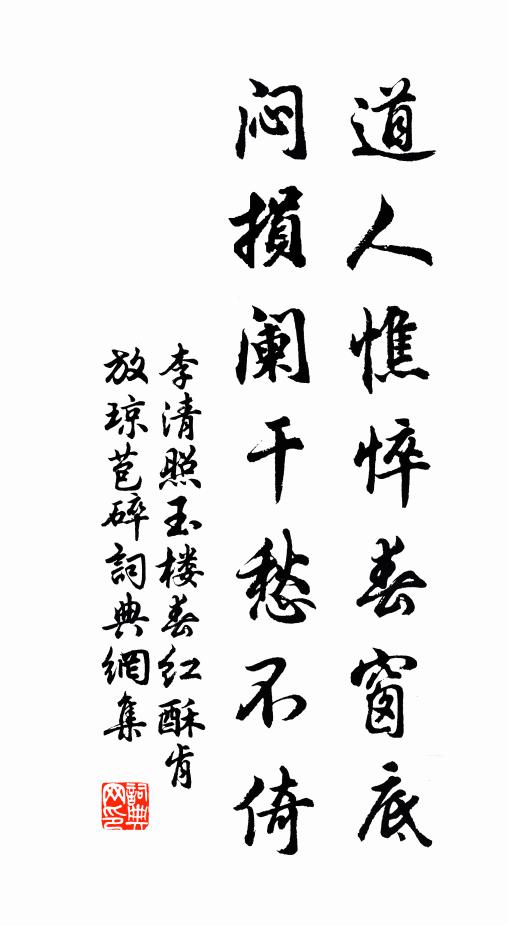 道人憔悴春窗底
闷损阑干愁不倚
李清照玉楼春红酥肯
放琼苞碎詞典網集
詞典
网印